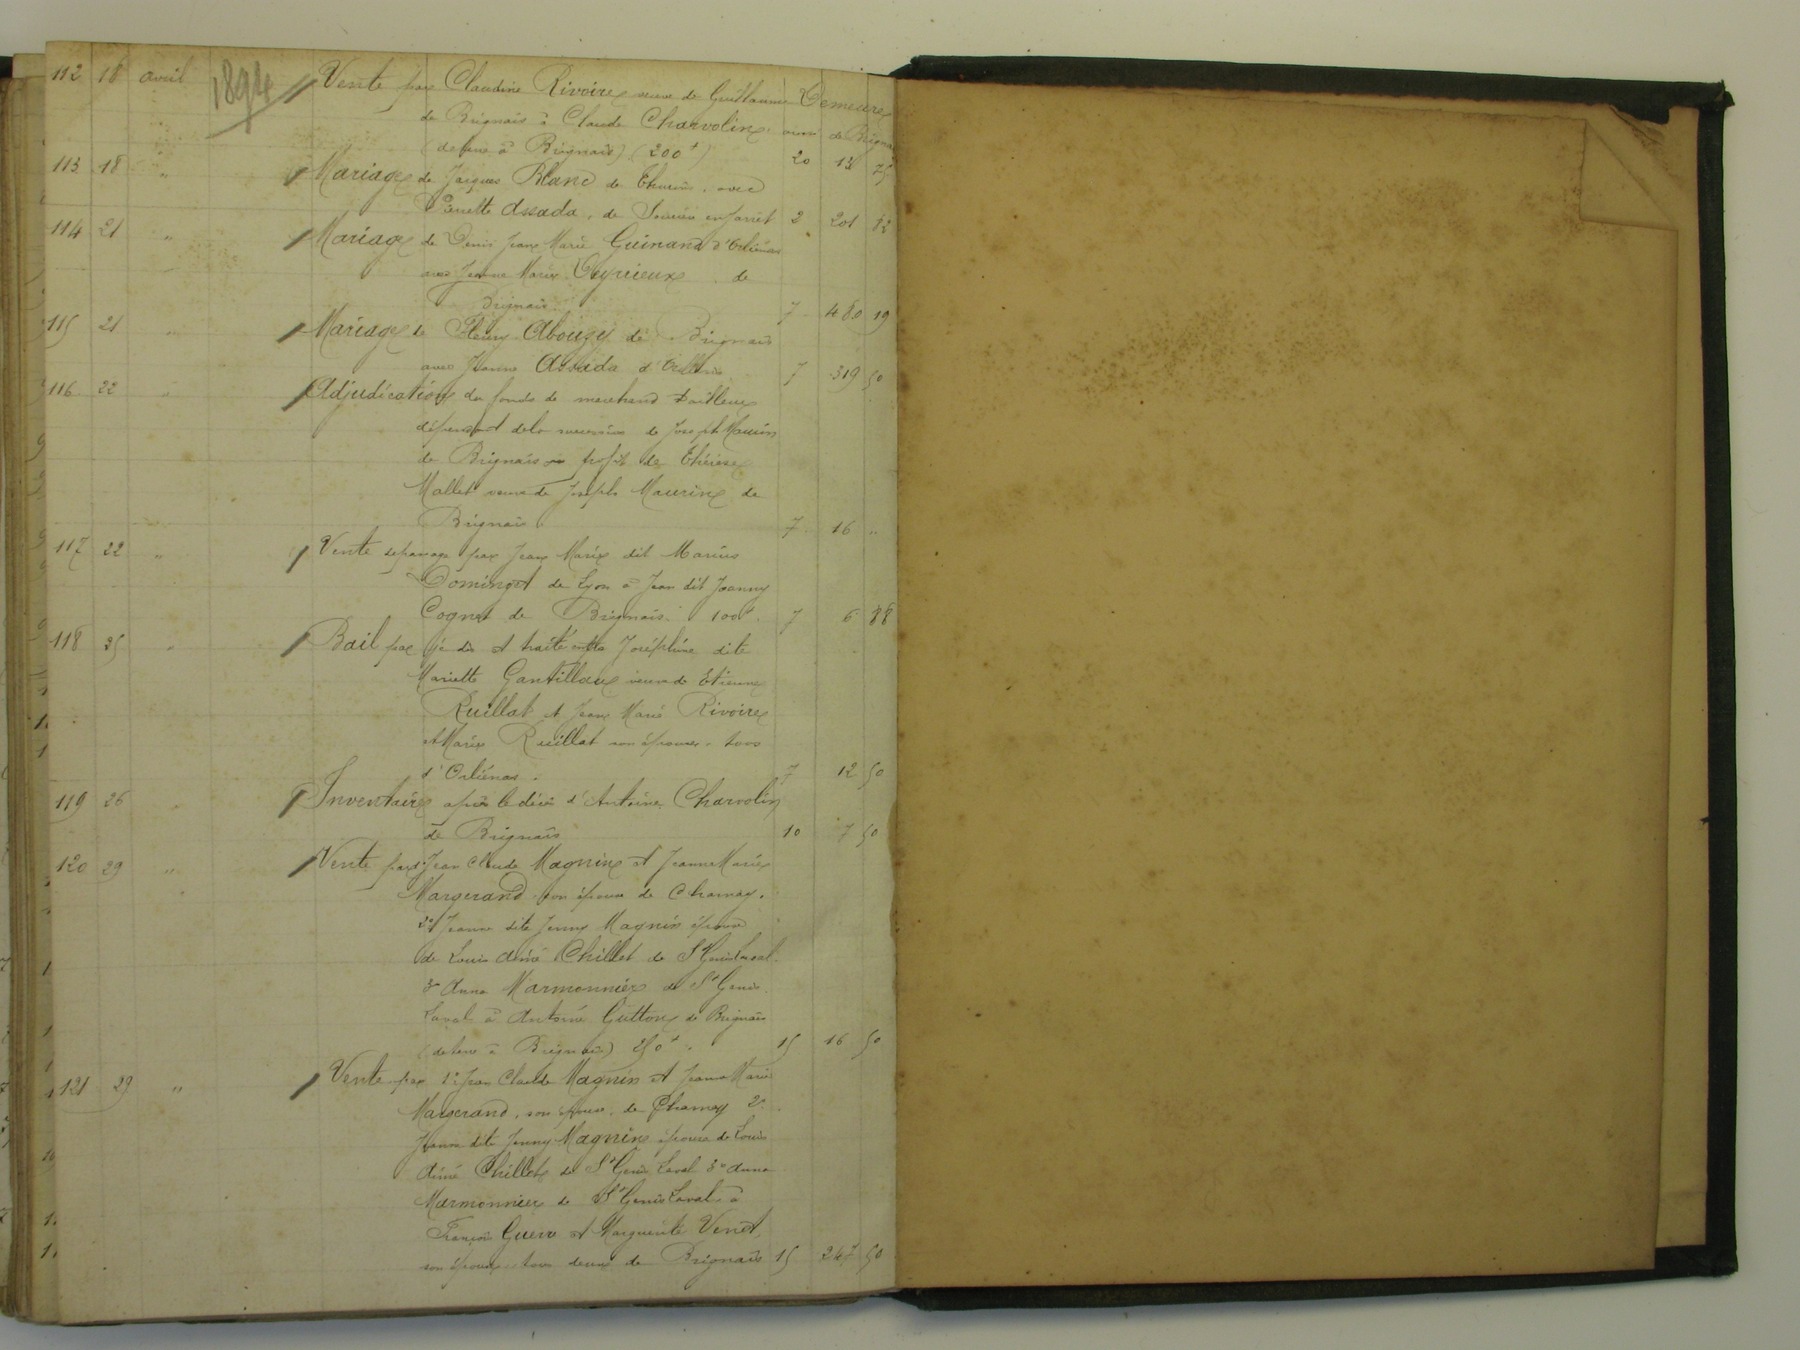 112 18 avril 1894 Vente par Claudine Rivoire veuve de Guillaume Demeure
de Brignais à Claude Charvolin aussi de Brignais
(de terre à Brignais) (200 f) 20 13 75
113 18 " Mariage de Jacques Blanc de Thurins, avec
Pierrette Assada, de Soucieu en Jarrêt 2 201 82
114 21 " Mariage de Denis Jean Marie Guinand d'Orliénas
avec Jeanne Marie Veyrieux de
Brignais 7 480 19
115 21 " Mariage de Fleury Abouzy de Brignais
avec Jeanne Assada d' 7 319 50
116 22 " Adjudication du fonds de marchand
dépendant de la succession de Joseph Maurin
de Brignais au profit de Thérèse
Mallet veuve de Joseph Maurin de
Brignais. 7 16 "
117 22 " Vente par Jean Marie dit Marius
Domingot de Lyon à Jean dit Joanny
Cognet de Brignais. 100 f. 7 6 88
118 25 " Bail par et traité entre Joséphine dite
Mariette Gantillon veuve de Etienne
Ruillat et Jean Marie Rivoire
et Marie Ruillat son épouse, tous
d'Orliénas. 7 12 50
119 26 Inventaire après le décès d'Antoine Charvolin
de Brignais 10 7 50
120 29 " Vente par 1° Jean Claude Magnin et Jeanne Marie
Margerand son épouse de Charnay.
2° Jeanne dite Jenny Magnin épouse
de Louis Aimé Chillet de St Genis Laval.
3° Anna Marmonnier de St Genis
Laval à Antoine Gutton de Brignais
(de terre à Brignais) 250 f. 15 16 50
121 29 " Vente par 1° Jean Claude Magnin et Jeanne Marie
Margerand, son épouse, de Charnay 2°
Jeanne dite Jenny Magnin épouse de Louis
Aimé Chillet de St Genis Laval 3° Anna
Marmonnier de St Genis Laval à
François Guerr et Marguerite Venet,
son épouse, tous deux de Brignais 15 247 50